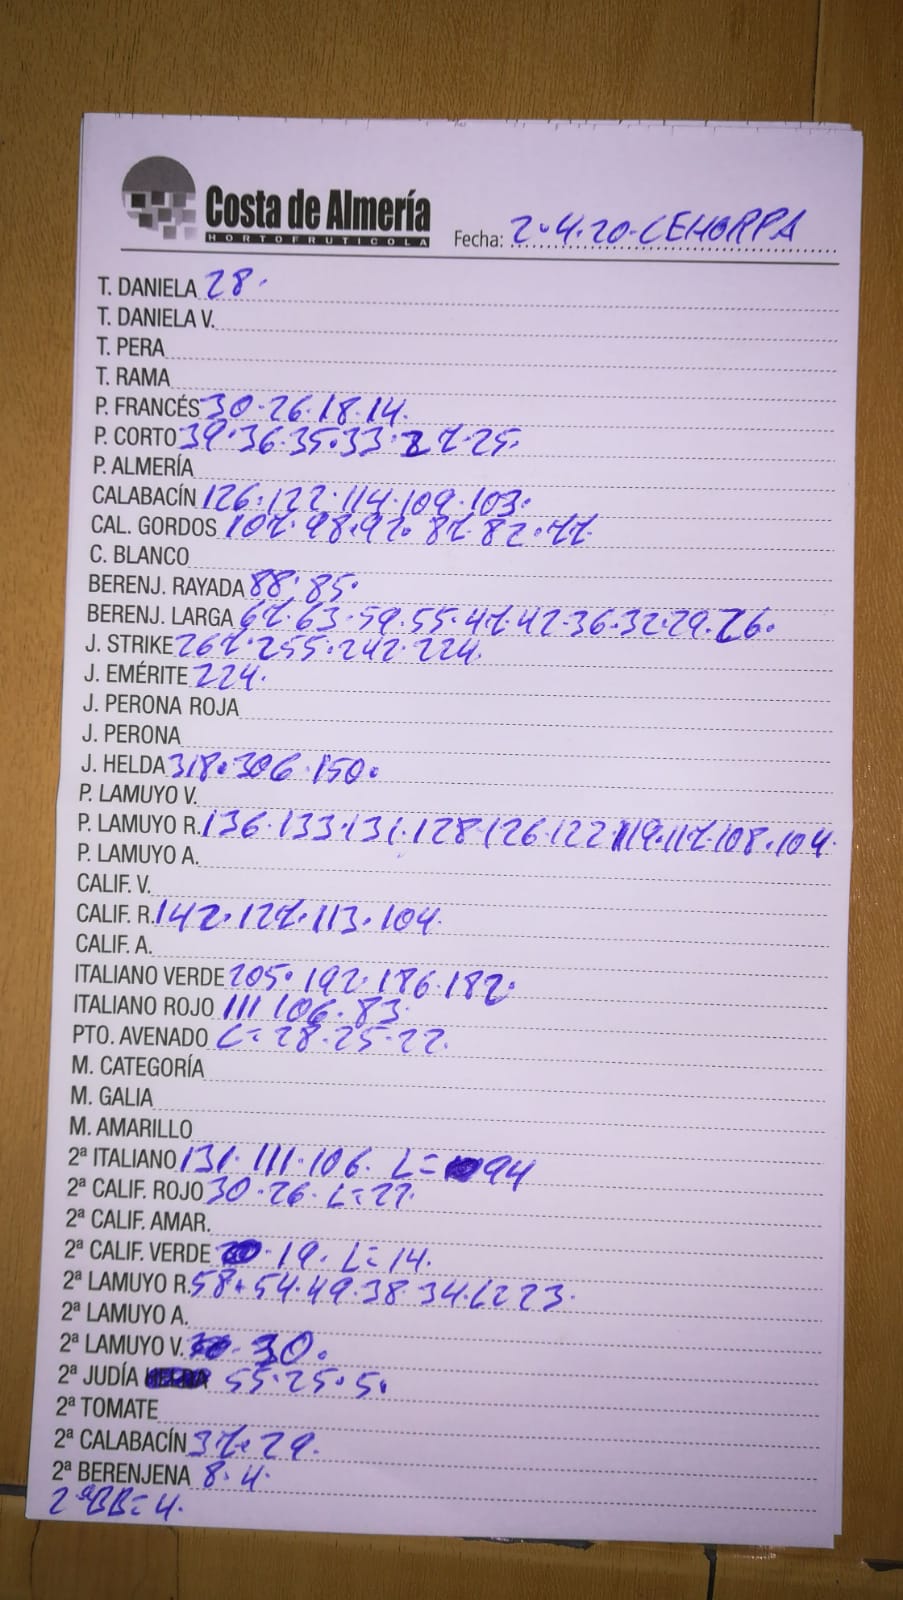 Costa de Almería
HORTOFRUTICOLA
Fecha: 2.4.20-CEHORPA
T. DANIELA 28.
T. DANIELA V.
T. PERA
T. RAMA
P. FRANCÉS 30.26.18.14.
P. CORTO 39.36.35.33.27.25.
P. ALMERÍA
CALABACÍN 126.122.114.109.103.
CAL. GORDOS 107.98.92.87.82.77.
C. BLANCO
BERENJ. RAYADA 88.85.
BERENJ. LARGA 67.63.59.55.47.42.36.32.29.26.
J. STRIKE 267.255.242.224.
J. EMÉRITE 224.
J. PERONA ROJA
J. PERONA
J. HELDA 318.306.150.
P. LAMUYO V.
P. LAMUYO R. 136.133.131.128.126.122.119.117.108.104.
P. LAMUYO A.
CALIF. V.
CALIF. R. 142.127.113.104.
CALIF. A.
ITALIANO VERDE 205.192.186.182.
ITALIANO ROJO 111 106.83.
PTO. AVENADO L=28.25.22.
M. CATEGORÍA
M. GALIA
M. AMARILLO
2ª ITALIANO 131.111.106. L= 94
2ª CALIF. ROJO 30.26. L=22.
2ª CALIF. AMAR.
2ª CALIF. VERDE 19. L=14.
2ª LAMUYO R. 58.54.49.38.34.L=23.
2ª LAMUYO A.
2ª LAMUYO V. 30.
2ª JUDÍA 55.25.5.
2ª TOMATE
2ª CALABACÍN 37.29.
2ª BERENJENA 8.4.
2ªBB=4.